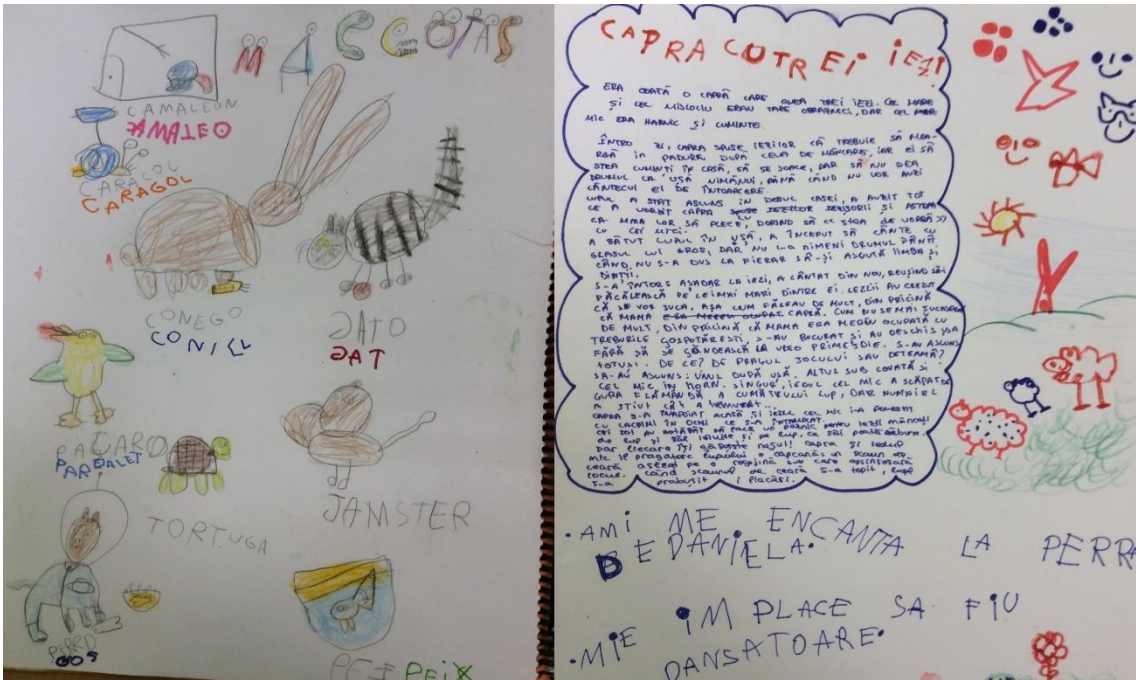 MASCOTAS
CAMALEON
CAMALEO
CARACOL
CARAGOL
CONEGO
CONILL
GATO
GAT
PAGARO
PARDALET
TORTUGA
JAMSTER
PERRO
GOS
PEIX
CAPRA CU TREI IEZI
ERA ODATĂ O CAPRĂ CARE AVEA TREI IEZI. CEL MARE
ȘI CEL MIJLOCIU ERAU TARE OBRAZNICI, DAR CEL MAI
MIC ERA HARNIC ȘI CUMINTE.
ÎNTRO ZI, CAPRA SPUSE IEZILOR CĂ TREBUIE SĂ MEA-
RGĂ ÎN PADURE, DUPĂ CEVA DE MÂNCARE, IAR EI SĂ
STEA CUMINȚI ÎN CASĂ, SĂ SE JOACE, DAR SĂ NU DEA
DRUMUL LA UȘĂ NIMĂNUI, PÂNĂ CÂND NU VOR AUZI
CÂNTECUL EI DE ÎNTOARCERE.
LUPUL A STAT ASCUNS IN DOSUL CASEI, A AUZIT TOT
CE A VORBIT CAPRA IEZIȘORII ȘI AȘTEPTA
CA MAMA LOR SĂ PLECE, DORIND SĂ STEA DE VORBĂ
CU CEI MICI.
A BĂTUT LUPUL ÎN UȘĂ, A ÎNCEPUT SĂ CÂNTE CU
GLASUL LUI GROS, DAR NU I-A NIMENI DRUMUL PÂNĂ
CÂND NU S-A DUS LA FIERAR SĂ-ȘI ASCUTĂ LIMBA ȘI
DINȚII.
S-A ÎNTORS AȘADAR LA IEZI, A CÂNTAT DIN NOU, REUȘIND SĂI
PĂCĂLEASCĂ PE CEI MAI MARI DINTRE EI. IEZII AU CREZUT
CĂ SE VOR JUCA, AȘA CUM FĂCEAU DE MULT, DIN PRICINĂ
CĂ MAMA CAPRĂ. CUM NU SE MAI JUCASERĂ
DE MULT, DIN PRICINĂ CĂ MAMA ERA MEREU OCUPATĂ CU
TREBURILE GOSPODĂREȘTI, S-AU BUCURAT ȘI AU DESCHIS UȘA
FĂRĂ SĂ SE GÂNDEASCĂ LA VREO PRIMEJDIE. S-AU ASCUNS
TOTUȘI. DE CE? DE DRAGUL JOCULUI SAU DE TEAMĂ?
S-AU ASCUNS: UNUL DUPĂ UȘĂ, ALTUL SUB COVATĂ ȘI
CEL MIC ÎN HORN. SINGUR, IEDUL CEL MIC A SCĂPAT DE
GURA FLĂMÂNDĂ A CUMĂTRULUI LUP, DAR NUMAI EL
A ȘTIUT CÂT A TREMURAT...
CAPRA S-A ÎNAPOIAT ACASĂ ȘI IEDUL CEL MIC I-A POVESTIT
CU LACRIMI ÎN OCHI CE S-A ÎNTÂMPLAT.
CEI DOI AU HOTĂRÂT SĂ FACĂ UN PRAZNIC PENTRU IEZII MÂNCAȚI
DE LUP ȘI ȘI PE LUP, CA SĂI
DAR FIECARE ÎȘI GĂSEȘTE NAȘUL! CAPRA ȘI IEDUL
MIC ÎI PREGĂTESC LUPULUI O CAPCANĂ: UN SCAUN DE
CEARĂ AȘEZAT PE O ROGOJINĂ SUB CARE
FOCUL. CÂND SCAUNUL DE CEARĂ S-A TOPIT, LUPUL
S-A PRĂBUȘIT FLACĂRI.
• AMI ME ENCANTA LA PERRA
DE DANIELA.
• MIE IM PLACE SA FIU
DANSATOARE.